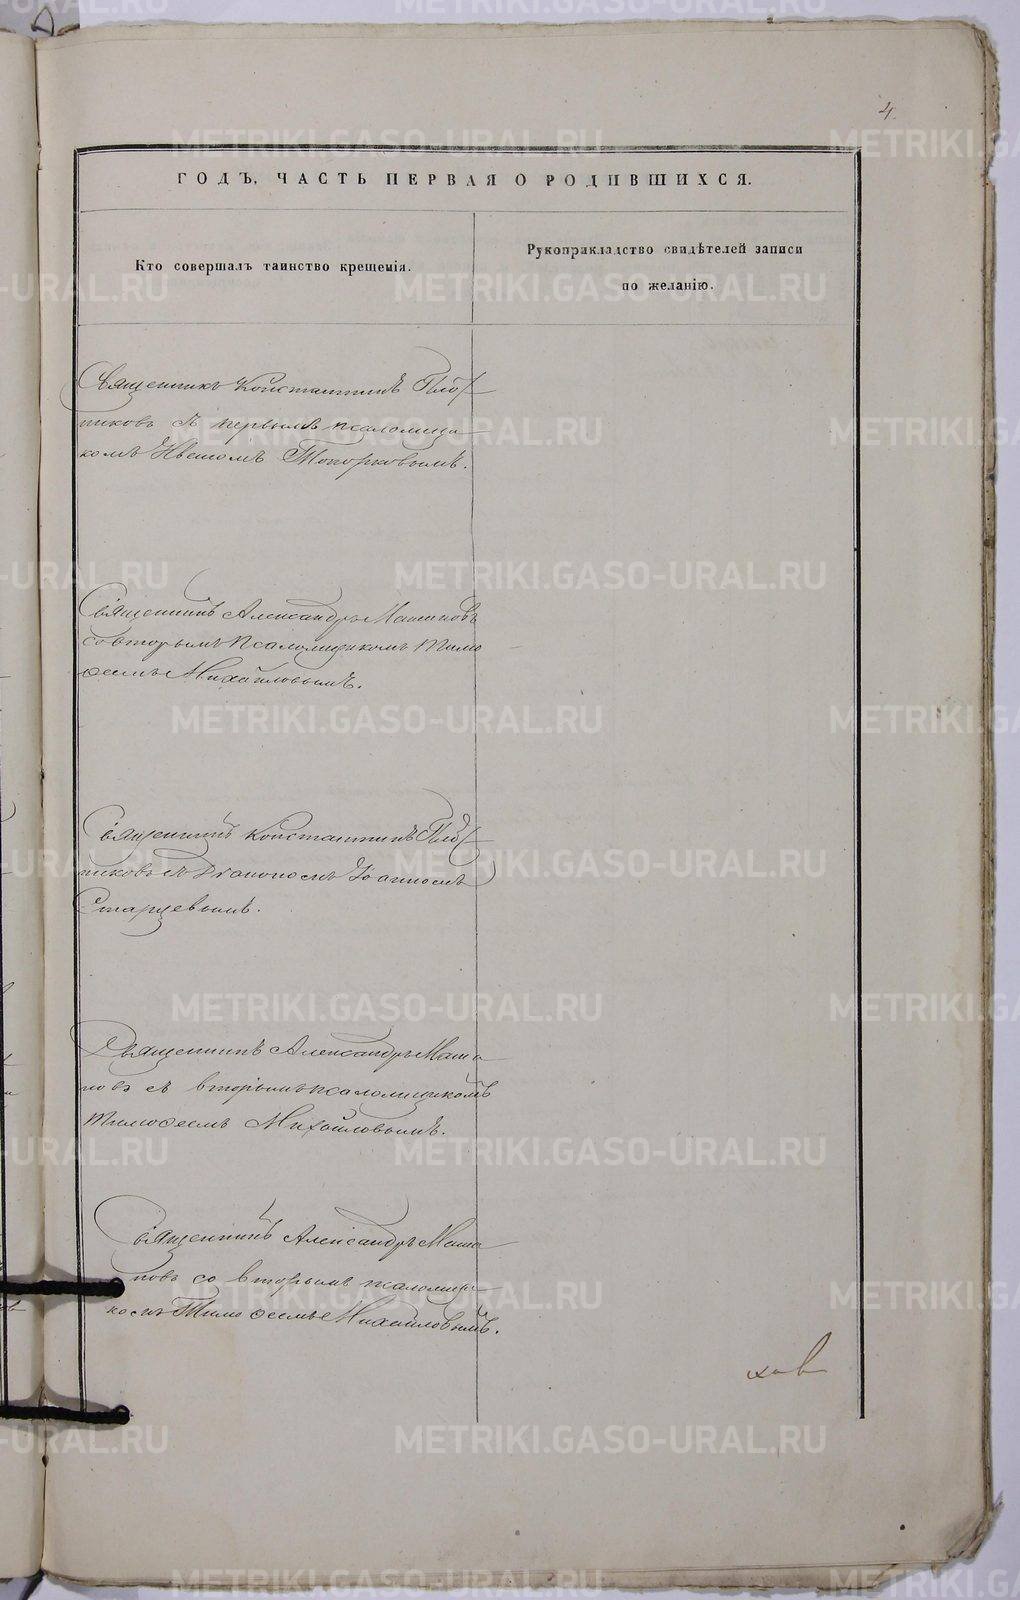 4.
ГОДЪ, ЧАСТЬ ПЕРВАЯ О РОДИВШИХСЯ.
Кто совершалъ таинство крещенія.
Рукоприкладство свидѣтелей записи
по желанію.
Священникъ Константинъ Плот
никовъ съ первымъ псаломщи
комъ Иваномъ Топорковымъ.
Священникъ Александръ Машановъ
со вторымъ псаломщикомъ Тимо
феемъ Михайловымъ.
Священникъ Константинъ Плот
никовъ съ Діакономъ Іоанномъ
Старцевымъ.
Священникъ Александръ Маша
новъ съ вторымъ псаломщикомъ
Тимофеемъ Михайловымъ.
Священникъ Александръ Маша
новъ со вторымъ псаломщи
комъ Тимофеемъ Михайловымъ.
METRIKI.GASO-URAL.RU